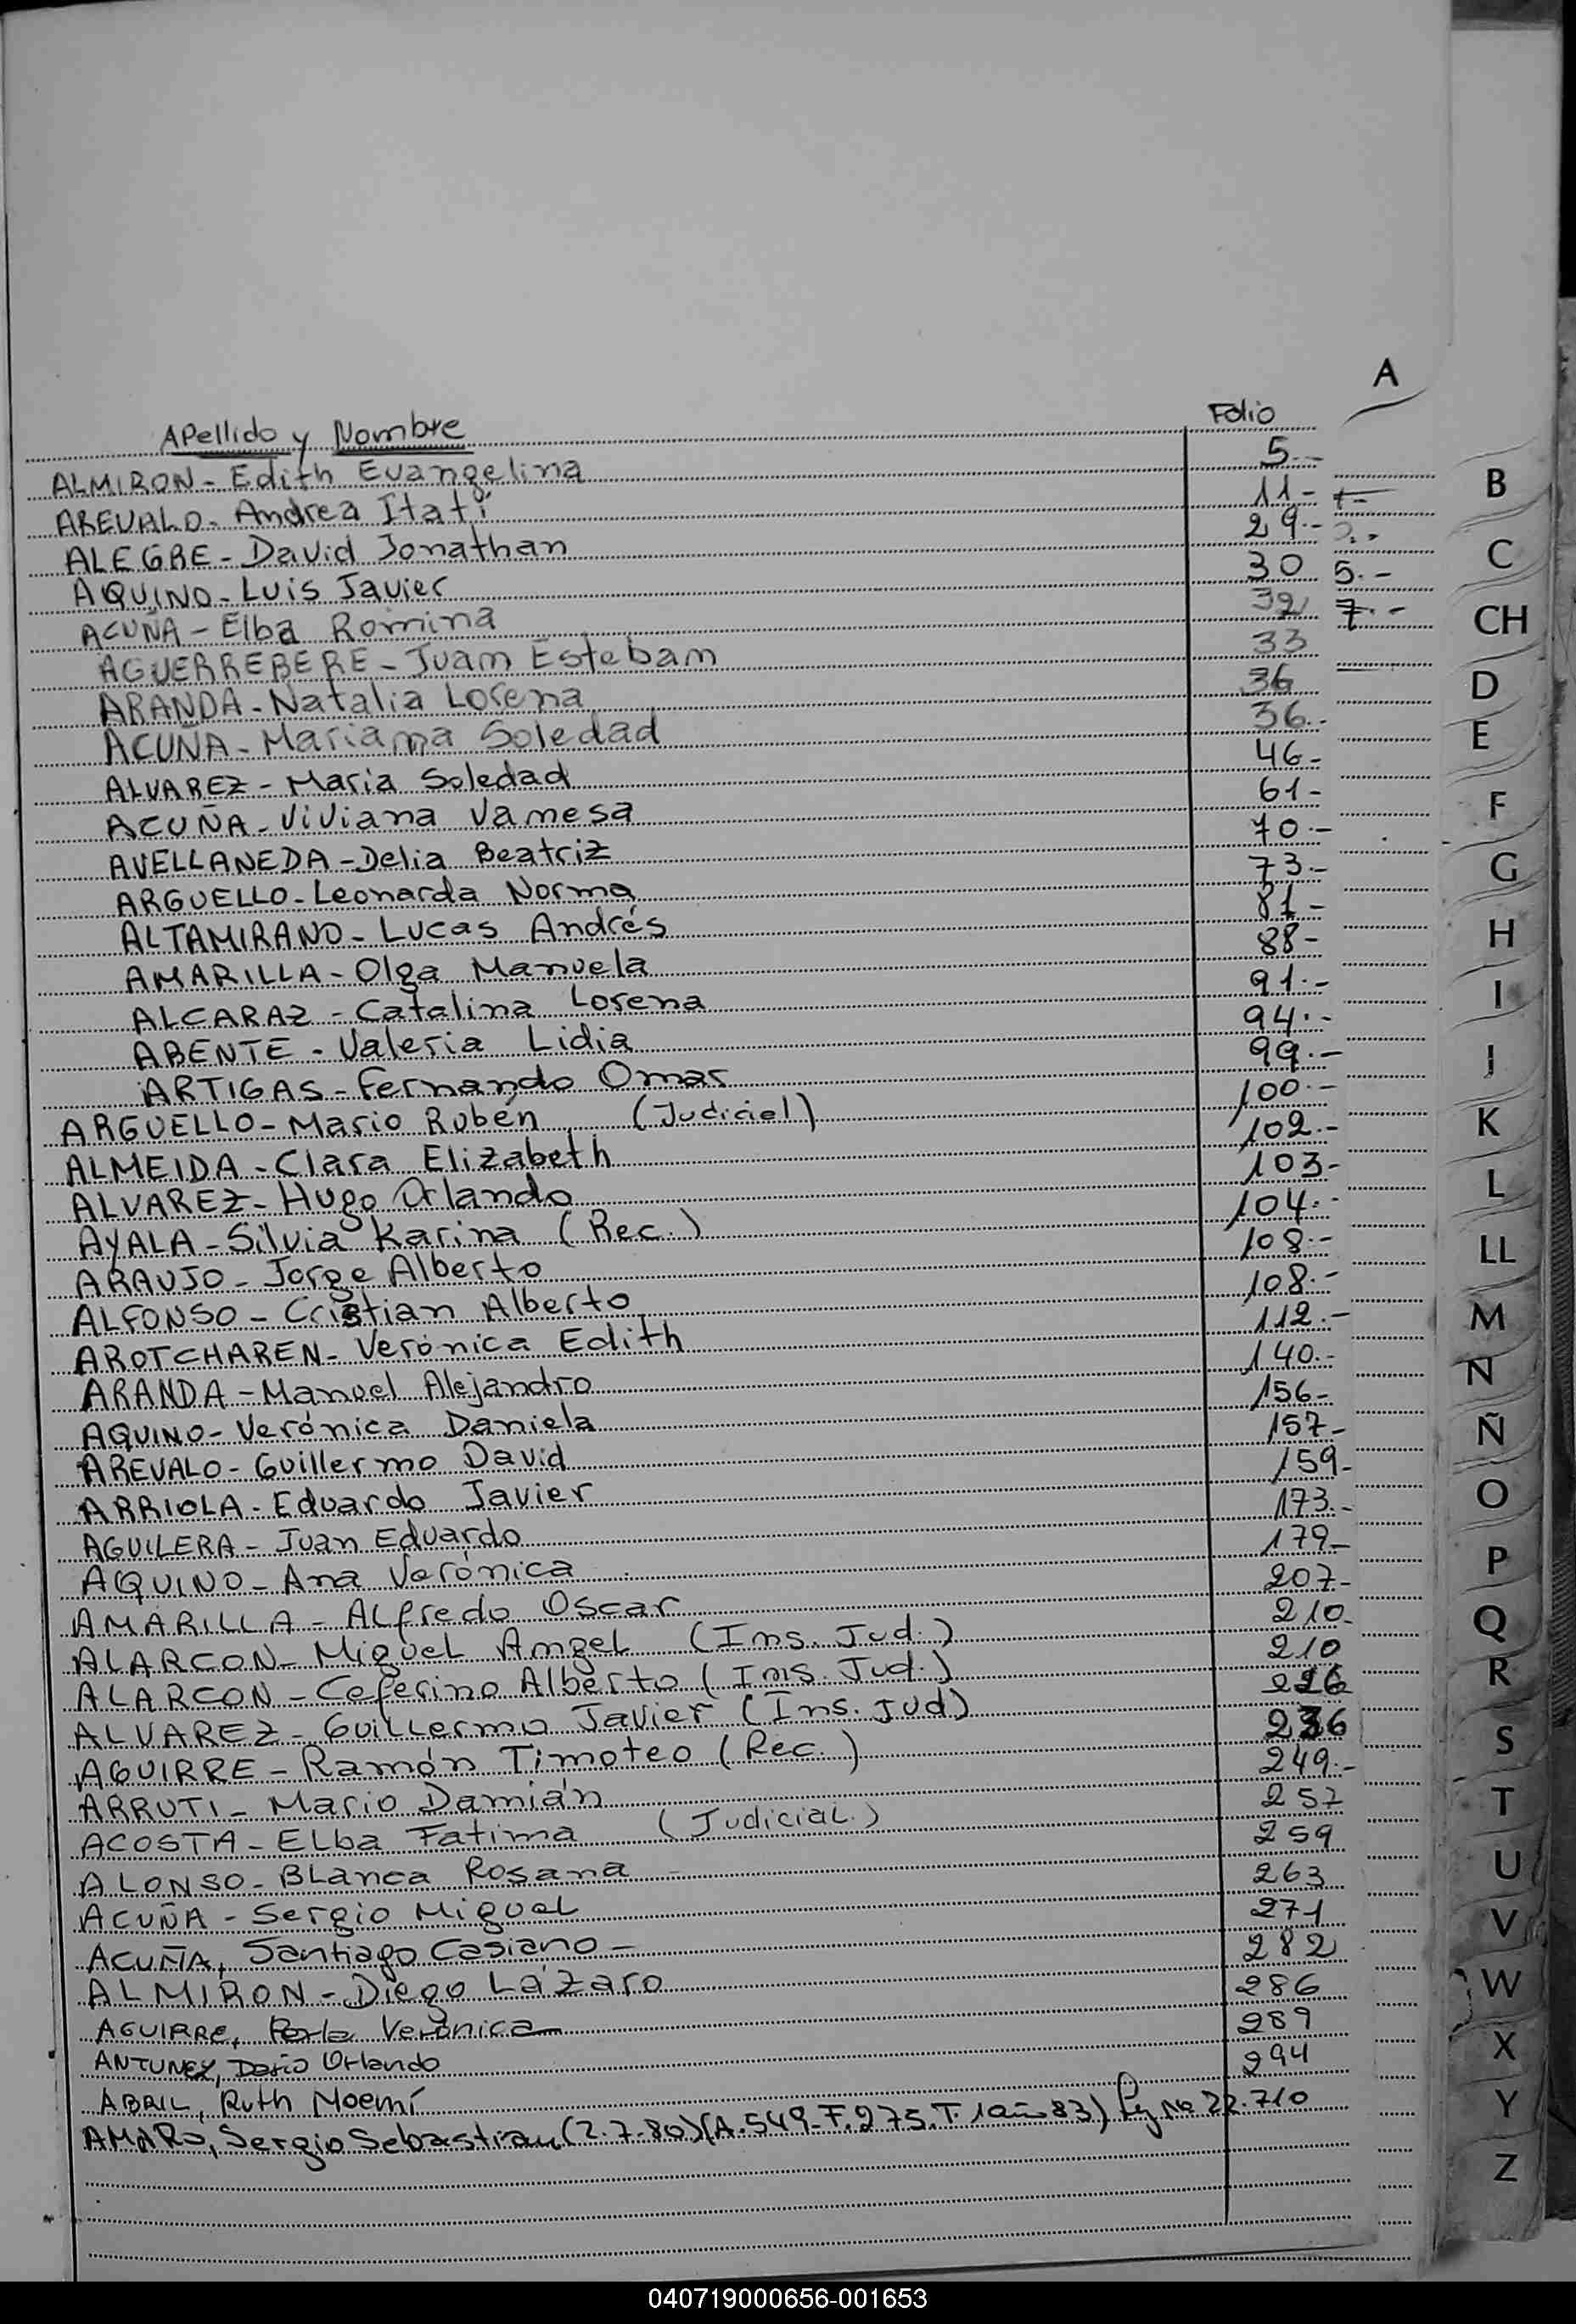 A
Apellido y Nombre Folio
ALMIRON - Edith Evangelina 5.-
AREVALO - Andrea Itatí 11-
ALEGRE - David Jonathan 29.-
AQUINO - Luis Javier 30 5.-
ACUÑA - Elba Romina 32 7.-
AGUERREBERE - Juam Estebam 33
ARANDA - Natalia Lorena 36
ACUÑA - Mariama Soledad 36.-
ALVAREZ - Maria Soledad 46-
ACUÑA - Viviana Vamesa 61-
AVELLANEDA - Delia Beatriz 70.-
ARGUELLO - Leonarda Norma 73.-
ALTAMIRANO - Lucas Andrés 81-
AMARILLA - Olga Manuela 88-
ALCARAZ - Catalina Lorena 91.-
ABENTE - Valeria Lidia 94.-
ARTIGAS - Fernando Omar 99.-
ARGUELLO - Mario Rubén (Judicial) 100.-
ALMEIDA - Clara Elizabeth 102.-
ALVAREZ - Hugo Orlando 103-
AYALA - Silvia Karina (Rec.) 104.-
ARAUJO - Jorge Alberto 108.-
ALFONSO - Cristian Alberto 108.-
AROTCHAREN - Verónica Edith 112.-
ARANDA - Manuel Alejandro 140.-
AQUINO - Verónica Daniela 156-
AREVALO - Guillermo David 157-
ARRIOLA - Eduardo Javier 159-
AGUILERA - Juan Eduardo 173.-
AQUINO - Ana Verónica 179-
AMARILLA - Alfredo Oscar 207-
ALARCON - Miguel Angel (Ins. Jud.) 210-
ALARCON - Ceferino Alberto (Ins. Jud.) 210
ALVAREZ - Guillermo Javier (Ins. Jud)
AGUIRRE - Ramón Timoteo (Rec.) 236
ARRUTI - Mario Damián 249.-
ACOSTA - Elba Fatima (Judicial.) 257
ALONSO - Blanca Rosana 259
ACUÑA - Sergio Miguel 263
ACUÑA, Santiago Casiano - 271
ALMIRON - Diego Lázaro 282
AGUIRRE, Perla Verónica 286
ANTUNEZ, Dario Orlando 289
ABRIL, Ruth Noemí 294
AMARO, Sergio Sebastian (2.7.80) (A.549-F.275.T.1 año 83) Ley No 22.710
B
C
CH
D
E
F
G
H
I
J
K
L
LL
M
N
Ñ
O
P
Q
R
S
T
U
V
W
X
Y
Z
040719000656-001653